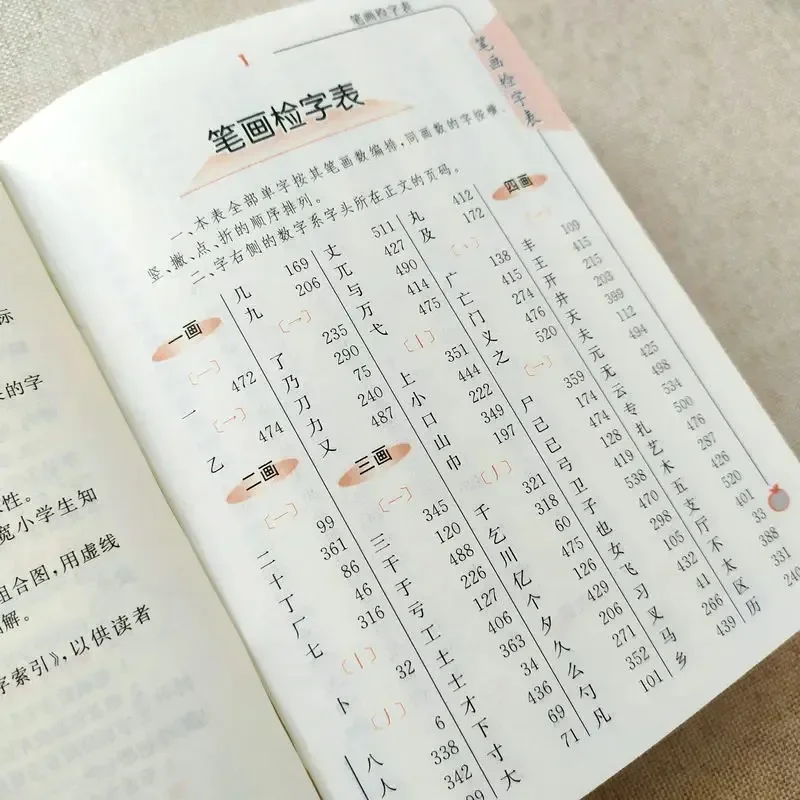 标
来的字
性。
宽小学生知
组合图,用虚线
图解。
字索引》,以供读者
笔画检字表
1
笔画检字表
笔画检字表
一、本表全部单字按其笔画数编排,同画数的字按横、
竖、撇、点、折的顺序排列。
二、字右侧的数字系字头所在正文的页码。
一画
〔一〕
一 472
〔乛〕
乙 474
二画
〔一〕
二 99
十 361
丁 86
厂 46
七 316
〔丨〕
卜 32
〔丿〕
八 6
人 338
342
几 169
九 206
〔乛〕
了 235
乃 290
刀 75
力 240
又 487
三画
〔一〕
三 345
干 120
于 488
亏 226
工 127
土 406
士 363
才 34
下 436
寸 69
大 71
丈 511
兀 427
与 490
万 414
弋 475
〔丨〕
上 351
小 444
口 222
山 349
巾 197
〔丿〕
千 321
乞 318
川 60
亿 475
个 126
夕 429
久 206
么 271
勺 352
凡 101
丸 412
及 172
〔丶〕
广 138
亡 415
门 274
义 476
之 520
〔乛〕
尸 359
己 174
已 474
弓 128
卫 419
子 538
也 470
女 298
飞 105
习 432
叉 41
马 266
乡 439
四画
〔一〕
丰 109
王 415
开 215
井 203
天 399
夫 112
元 494
无 425
云 498
专 534
扎 500
艺 476
木 287
五 426
支 520
厅 401
不 33
太 388
区 331
历 240